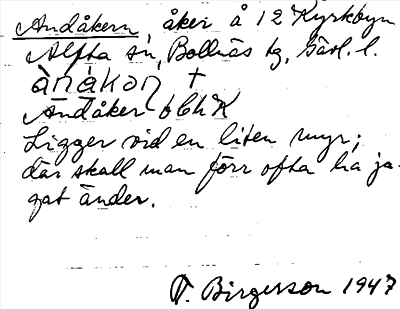 Andåkern, åker å 12 Kyrkbyn
Alfta sn, Bollnäs tg, Gävl. l.
ànàkon †
Andåker obl K
Ligger vid en liten myr;
där skall man förr ofta ha ja-
gat änder.
T. Birgersson 1947